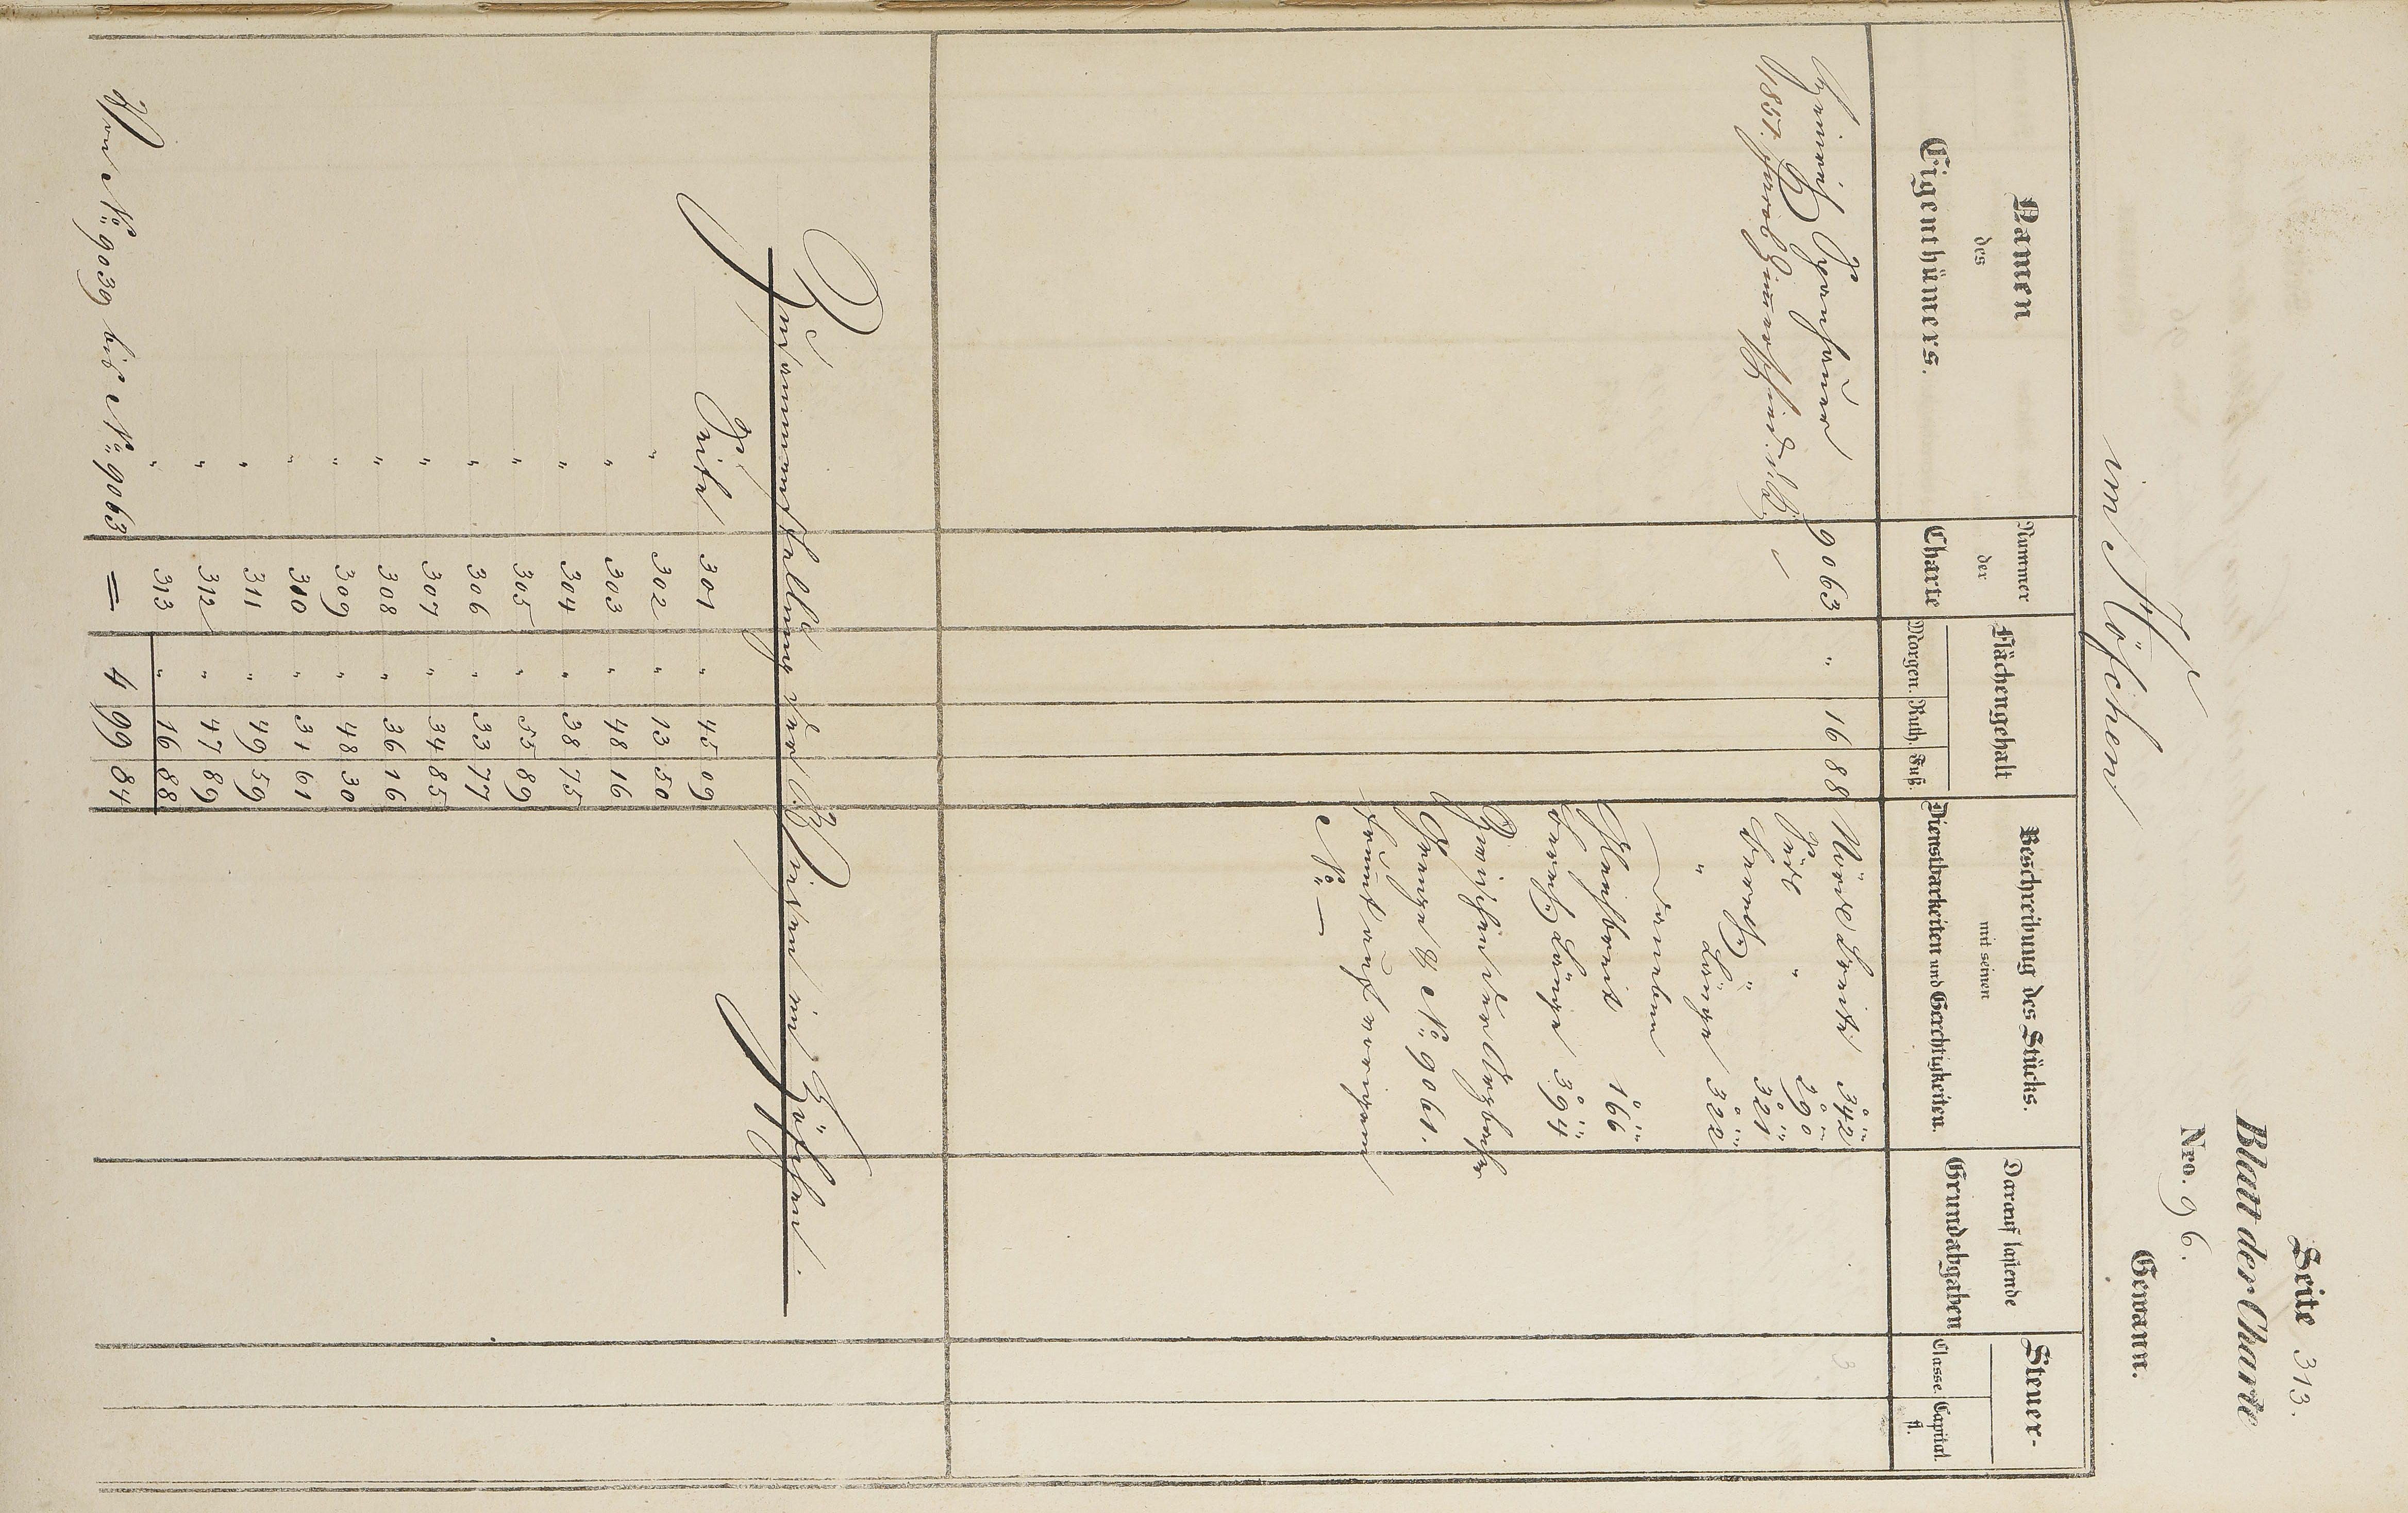 Seite 313.
Blatt der Charte
Nro. 96.
im Höfchen Gewann.
Namen
des
Eigenthümers.
Nummer
der
Charte
Flächengehalt
Morgen. Ruth. Fuß.
Beschreibung des Stücks.
mit seinen
Dienstbarkeiten und Gerechtigkeiten.
Darauf lastende
Grundabgaben
Steuer-
Classe. Capital.
fl.
Heinrich 9063 " 16 88
1851.
breite 342
Süd " 290
bergs " 321
" Länge 322
daneben
166
bergs Länge 394
Zwischen der
Grenze & No. 9061.
kommt auf vorigem
No. —
3
Zusammenstellung der Wiesen im Höfchen.
Seite 301 " 45 09
" 302 " 13 50
" 303 " 48 16
" 304 " 38 75
" 305 " 55 89
" 306 " 33 77
" 307 " 34 85
" 308 " 36 16
" 309 " 48 30
" 310 " 31 61
" 311 " 49 59
" 312 " 47 89
" 313 " 16 88
Von No. 9039 bis No. 9063 = 4 99 84